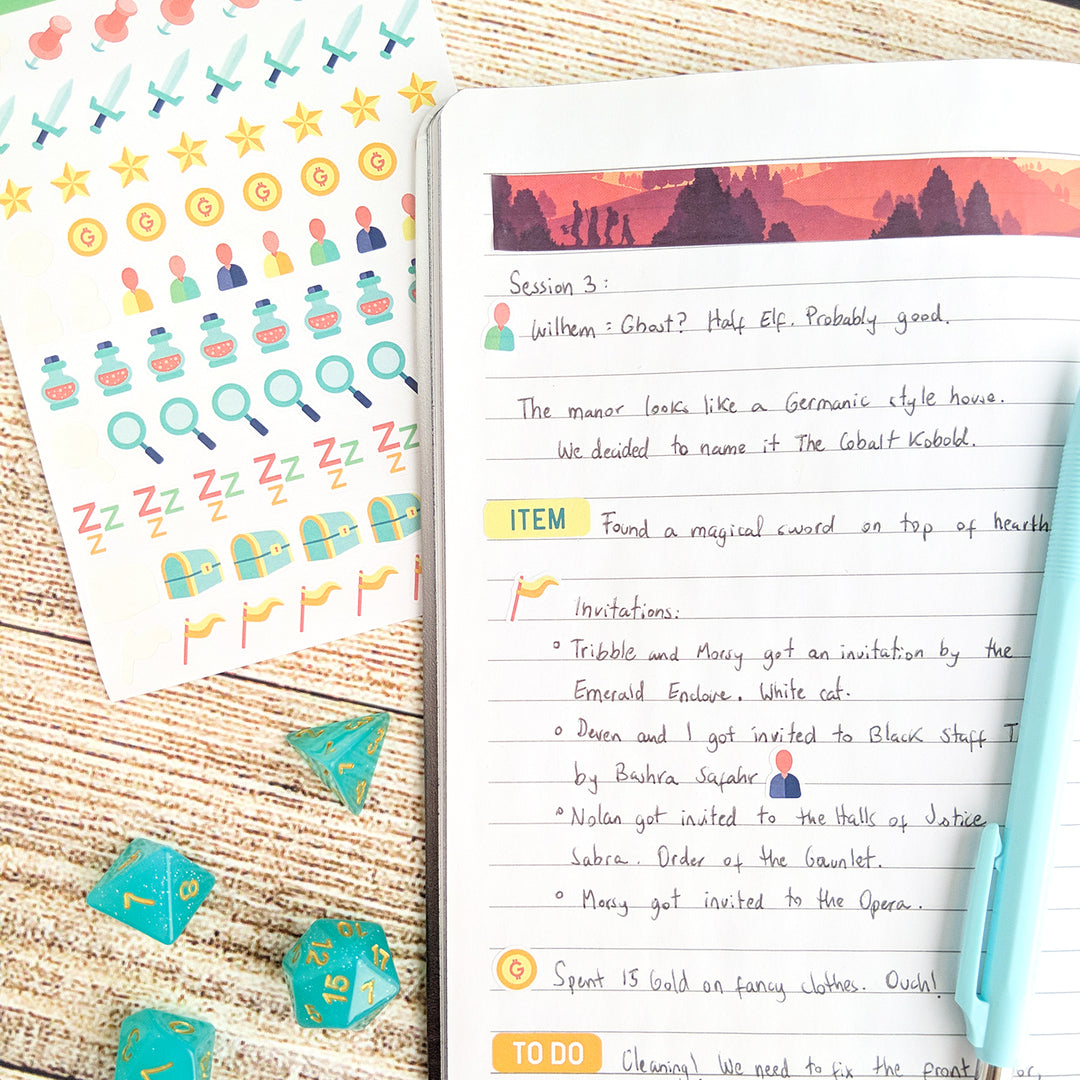 Session 3:
Wilhem: Ghost? Half Elf. Probably good.
The manor looks like a Germanic style house.
We decided to name it The Cobalt Kobold.
ITEM Found a magical sword on top of hearth
Invitations:
Tribble and Morsy got an invitation by the
Emerald Enclave. White cat.
Deven and I got invited to Black Staff T
by Bashra Safahr
Nolan got invited to the Halls of Justice
Sabra. Order of the Gaunlet.
Morsy got invited to the Opera.
Spent 15 Gold on fancy clothes. Ouch!
TO DO Cleaning! We need to fix the front